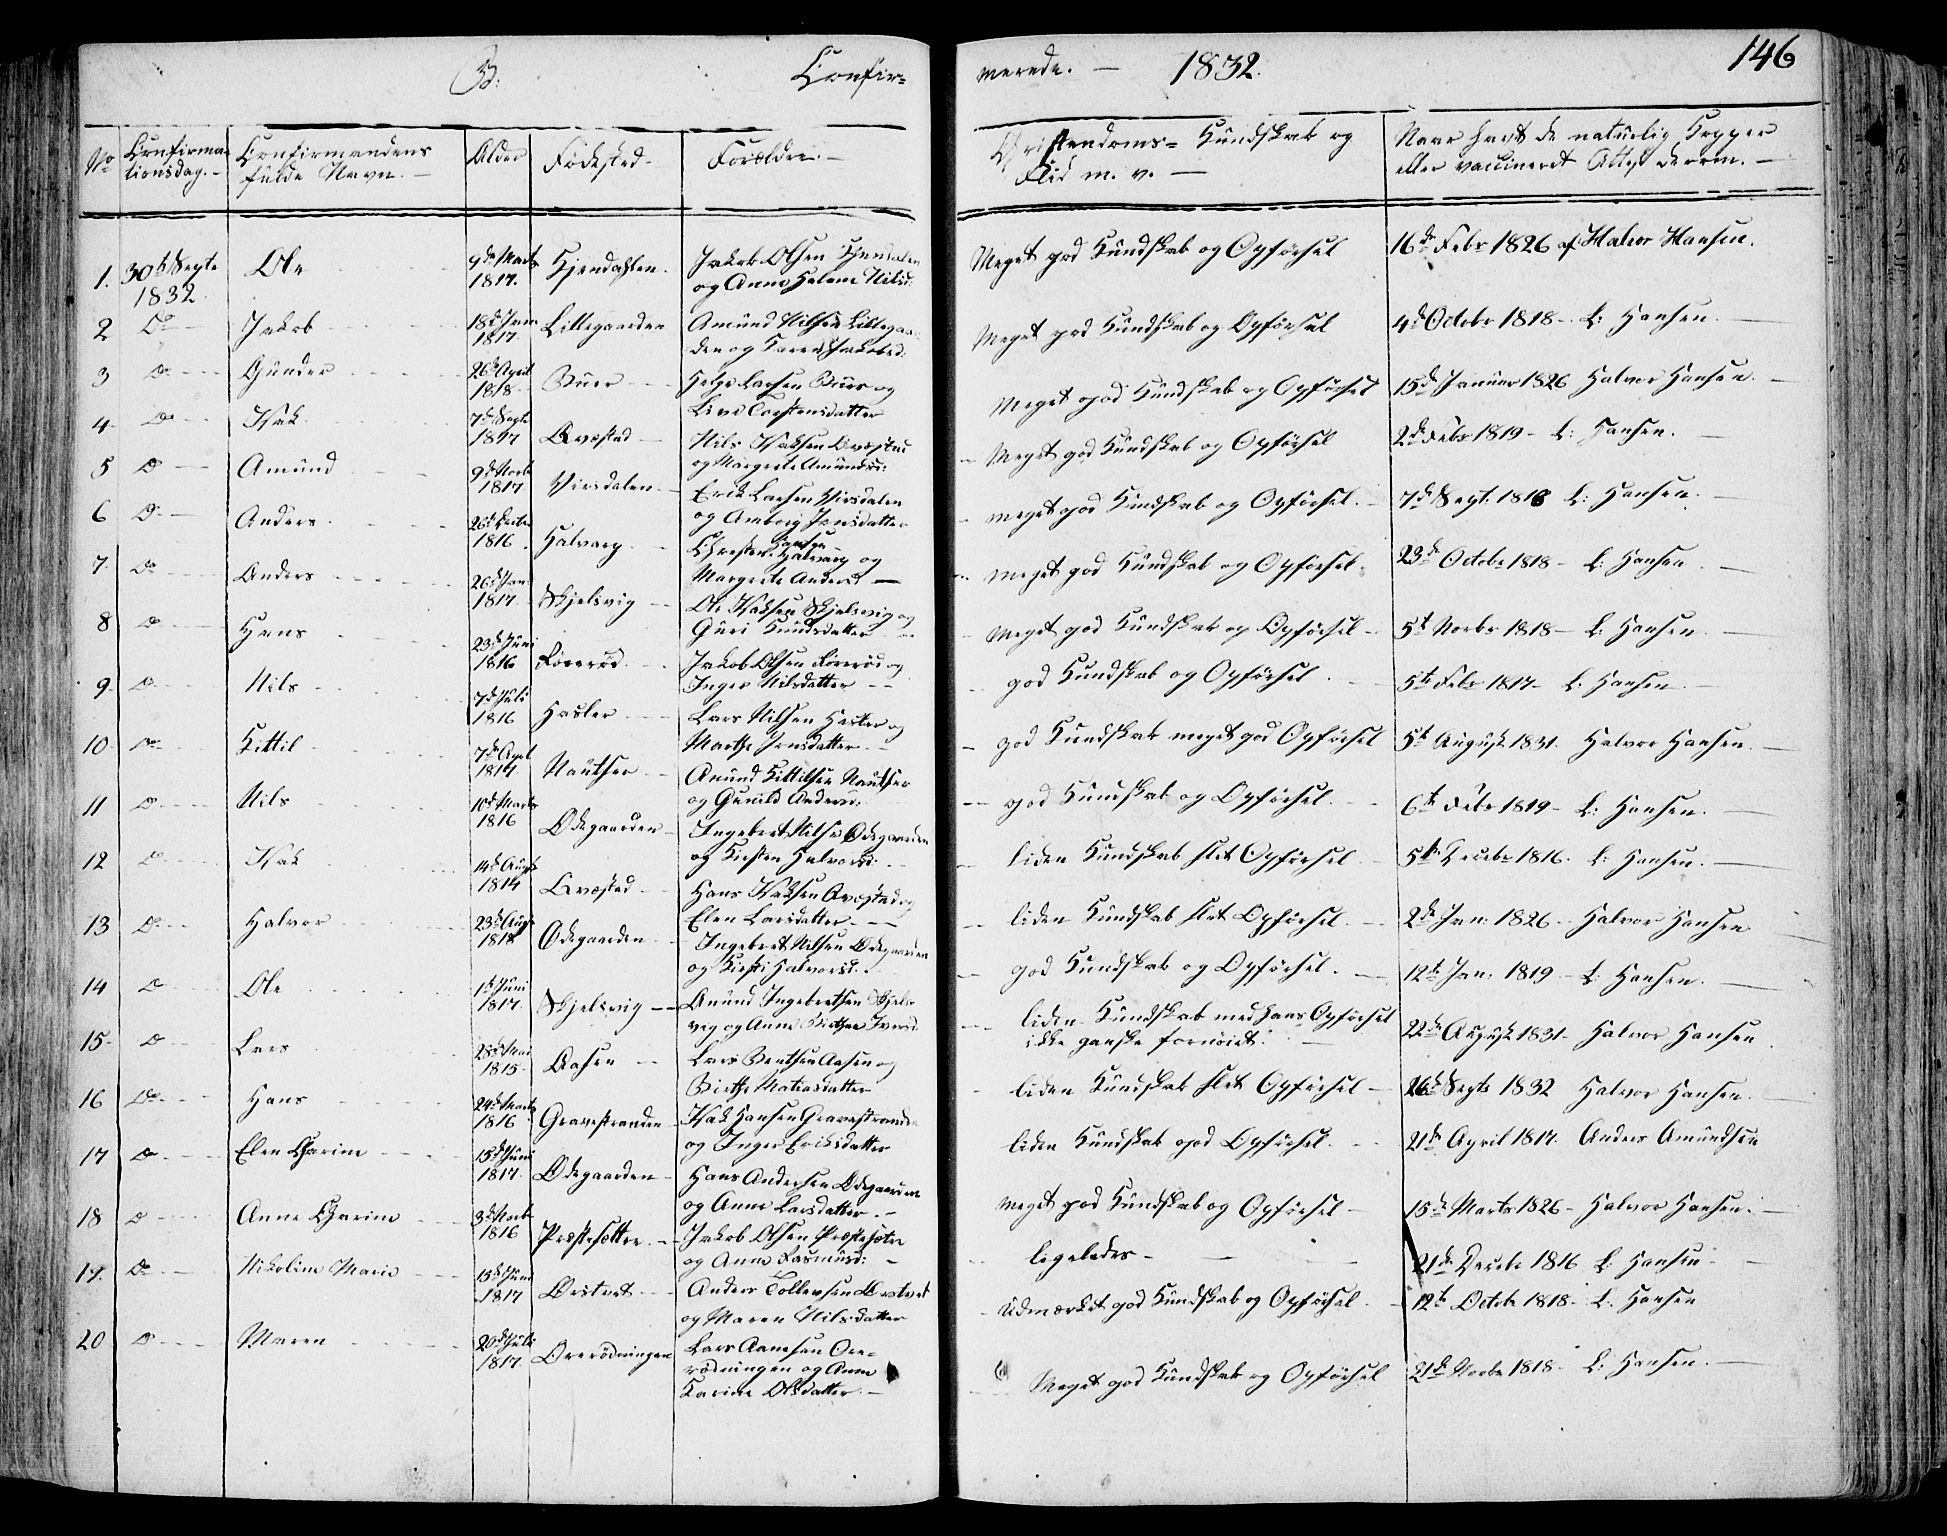 B. Confir=
merede. — 1832. 146
No Confirma=tionsdag. — Confirmandens fulde Navn. — Alder Fødested — Forældre. — Christendoms= Kundskab og Flid m. v. — Naar havt de naturlig Kopper eller vaccineret Attest derom. —
1. 30te Septr 1832 Ole 9de Marts 1817. Kjendahlen. Jakob Olsen Kjendalen og Anne Helene Nilsd: Meget god Kundskab og Opførsel 16de Febr 1826 af Halvor Hansen.
2 Do Jakob 18de Jan 1817. Lillegaarden Amund Nilsen Lillegaarden og Karen Jakobsd: Meget god Kundskab og Opførsel 4de Octobr 1818 - L: Hansen.
3 Do Gunder 26de April 1818 Buer Helge Larsen Buer og Live Torstensdatter Meget god Kundskab og Opførsel 15de Januar 1826 Halvor Hansen.
4 Do Isak 7de Septr 1817 Qvæstad Nils Isaksen Qvæstad og Margrete Amundsd: Meget god Kundskab og Opførsel 2de Febr 1819 - L: Hansen.
5 Do Amund 9de Novbr 1817 Virsdalen Erik Larsen Virsdalen og Amborg Jensdatter meget god Kundskab og Opførsel. 7de Sept: 1818 L: Hansen.
6 Do Anders 1816 Halvarp Christen Hansen Halvarp og Margrete Andersd meget god Kundskab og Opførsel. 23de Octobr 1818 - L: Hansen
7. Do Anders 26de Jan 1817 Skjelsvig Ole Isaksen Skjelsvig og Guri Knudsdatter meget god Kundskab og Opførsel 5te Novbr 1818 - L: Hansen
8 Do Hans 23de Juni 1816 Førerød Jakob Olsen Førerød og Inger Nilsdatter god Kundskab og Opførsel 5te Febr 1817 - L: Hansen
9 Do Nils 7de Juli 1816 Hasler Lars Nilsen Hasler og Marthe Jensdatter god Kundskab meget god Opførsel 5te August 1831. Halvor Hansen.
10 Do Kittil 7de April Nautser Anund Kittilsen Nautser og Gunild Andersd: god Kundskab og Opførsel. 6te Febr 1819 - L: Hansen.
11 Do Nils 10de Marts 1816 Ødegaarden Ingebret Nilsen Ødegaarden og Kirsten Halvorsd: liden Kundskab slet Opførsel 5te Decebr 1816. L: Hansen.
12 Do Isak 14de Aug 1814 Qvæstad Hans Isaksen Qvæstad og Elen Larsdatter liden Kundskab slet Opførsel. 2de Jan: 1826 - Halvor Hansen
13 Do Halvor 23de Aug 1818 Ødegaarden Ingebret Nilsen Ødegaarden og Kirsti Halvorsd. god Kundskab og Opførsel. 12te Jan: 1819 - L: Hansen.
14 Do Ole 1te Juni 1817. Skjelsvig Anund Ingebretsen Skjelsvig og Anne Birthe Iversd liden Kundskab med hans Opførsel ikke ganske fornøiet. 22de August 1831 - Halvor Hansen
15 Do Lars 28de Mai 1815 Aasen Lars Bentsen Aasen og Birthe Matiasdatter liden Kundskab slet Opførsel 26de Septr 1832 Halvor Hansen.
16 Do Hans 24de Marts 1816 Gravestranden Isak Hansen Gravestranden og Inger Eriksdatter liden Kundskab god Opførsel. 21de April 1817. Anders Amundsen
17 Do Elen Charine 15de Juni 1817. Ødegaarden Hans Andersen Ødegaarden og Anne Larsdatter. meget god Kundskab og Opførsel 15de Marts 1826 - Halvor Hansen.
18 Do Anne Charine 3de Novbr 1816 Præstesættre Jakob Olsen Præstesætre og Anne Rasmusd: ligeledes 21de Decebr 1816 L: Hansen
19. Do Nikoline Marie 15de Juni 1817 Ørstvet Anders Tollevsen Ørstvet og Maren Nilsdatter Udmærket god Kundskab og Opførsel. 12te Octobr 1818 - L: Hansen
20 Do Maren 20de Juli 1817. Ørerødningen Lars Aanesen Ørerødningen og Anne Karine Olsdatter. Meget god Kundskab og Opførsel 21de Novbr 1818 - L: Hansen.